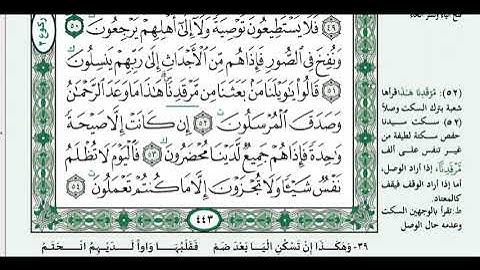 فَلَا يَسْتَطِيعُونَ تَوْصِيَةً وَلَا إِلَىٰ أَهْلِهِمْ يَرْجِعُونَ ٥٠
وَنُفِخَ فِي الصُّورِ فَإِذَا هُم مِّنَ الْأَجْدَاثِ إِلَىٰ رَبِّهِمْ يَنسِلُونَ
٥١ قَالُوا يَا وَيْلَنَا مَن بَعَثَنَا مِن مَّرْقَدِنَا هَٰذَا مَا وَعَدَ الرَّحْمَٰنُ
وَصَدَقَ الْمُرْسَلُونَ ٥٢ إِن كَانَتْ إِلَّا صَيْحَةً
وَاحِدَةً فَإِذَا هُمْ جَمِيعٌ لَّدَيْنَا مُحْضَرُونَ ٥٣ فَالْيَوْمَ لَا تُظْلَمُ
نَفْسٌ شَيْئًا وَلَا تُجْزَوْنَ إِلَّا مَا كُنتُمْ تَعْمَلُونَ ٥٤
٤٤٣
(٥٢) مَّرْقَدِنَا هَٰذَا قرأها
شعبة بترك السكت وصلاً
(٥٢) سكت سيدنا
حفص سكتة لطيفة من
غير تنفس على ألف
مَّرْقَدِنَا، إذا أراد الوصل،
أما إذا أراد الوقف فيقف
كالمعتاد.
ط: تقرأ بالوجهين السكت
وعدمه حال الوصل
٣٩- وَهَكَذَا إِنْ تَسْكُنِ الْيَا بَعْدَ ضَمٍّ فَقَلْبُهَا وَاوًا لَدَيْهِمُ انْحَتَمْ